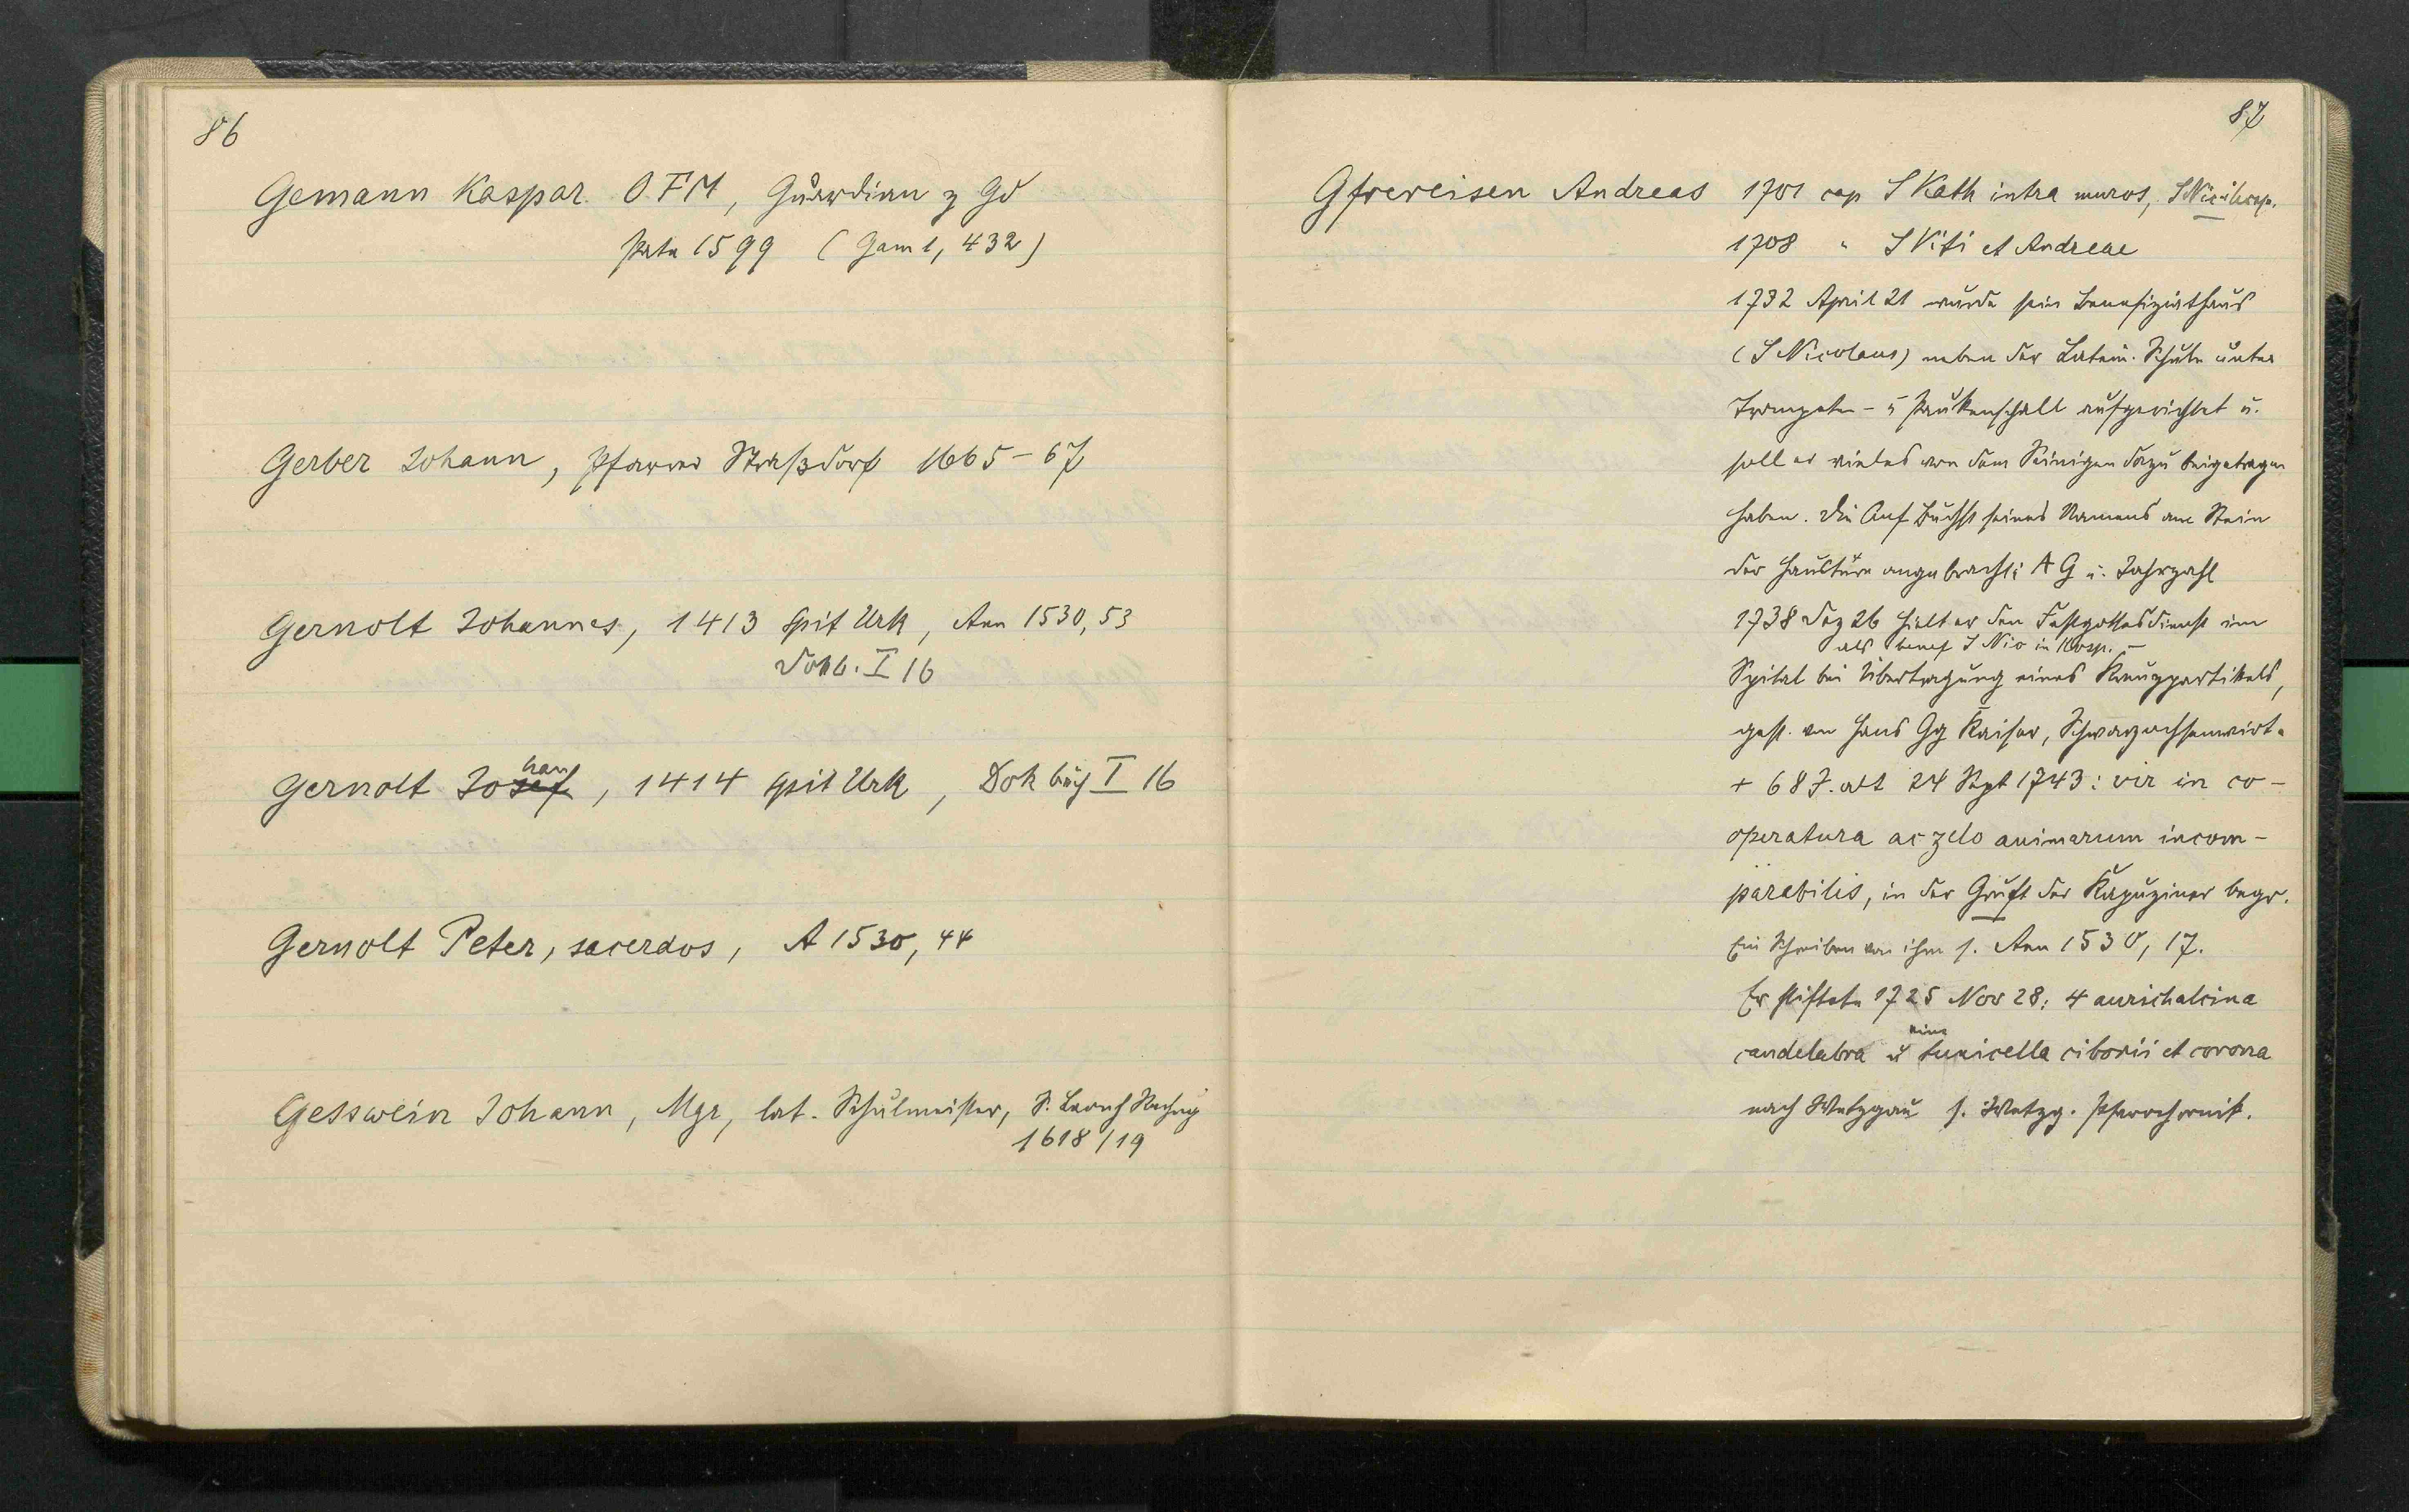 86
Gemann Kaspar. O.F.M, Guardian z Gd
Pate 1599 (Gam 1, 432)
Gerber Johann, Pfarrer Straßdorf 1665-67
Gernolt Johannes, 1413 Spit Urk, Ann 1530, 53
Dokb. I 16
Gernolt Johan, 1414 Spit Urk, Dok buch I 16
Gernolt Peter, sacerdos, A 1530, 44
Gesswein Johann, Mgr, lat. Schulmeister, S. Leonh Rechng
1618/19
87
Gfrereisen Andreas 1701 cap S Kath intra muros,
1708 " S Viti et Andreae
1732 April 21 wurde sein Benefiziathaus
(S Nicolaus) neben der Latein. Schule unter
Trompeten- u Paukenschall aufgerichtet u.
soll er vieles von dem Seinigen dazu beigetragen
haben. Die Anf Buchst seines Namens am Stein
der Haustüre angebracht: A G u. Jahrzahl
1738 Dez 26 hielt er den Festgottesdienst im
als benef S Nio in Hosp. -
Spital bei Übertragung eines Kreuzpartikels,
gest. von Hans Gg Kaiser, Schwarzochsenwirt.
+ 68 J. alt 24 Sept 1743: vir in co-
operatura ac zelo animarum incom-
parabilis, in der Gruft der Kapuziner begr.
Ein Schreiben von ihm s. Ann 1530, 17.
Er stiftete 1725 Nov 28: 4 aurichalcina
candelabra u eine tunicella ciborii et corona
nach Wetzgau s. Wetzg. Pfarrchronik.